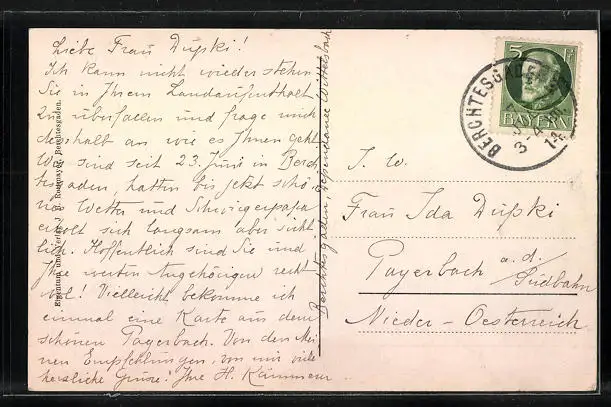 Liebe Frau Dußki!
Ich kann nicht wiederstehen
Sie in Ihrem Landaufenthalt
zu überfallen und frage mich
deshalb an wie es Ihnen geht
Wir sind seit 23. Juni in Berch
tesgaden, hatten bis jetzt schö
nes Wetter und Schwiegerpapa
erholt sich langsam aber sicht
lich. Hoffentlich sind Sie und
Ihre werten Angehörigen recht
wol! Vielleicht bekomme ich
einmal eine Karte aus dem
schönen Payerbach. Von den Mei
nen Empfehlungen, von mir viele
herzliche Grüsse! Ihre H. Kämmerer
Berchtesgaden, Dependance Wittelsbach
Eigentum und Verlag Berchtesgaden.
5 Pf.
BAYERN
BERCHTESGADEN
3-4 N
14
S. W.
Frau Ida Dußki
Payerbach a. d.
Südbahn
Nieder-Oesterreich